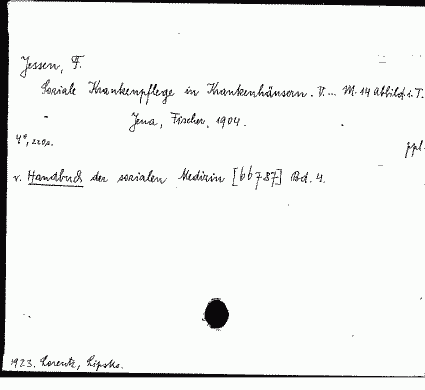 Jessen, F.
Soziale Krankenpflege in Krankenhäusern. V. ... M. 14 Abbild. i. T.
Jena, Fischer, 1904.
4°, 220 s.
ppl.
v. Handbuch der sozialen Medizin [66787] Bd. 4.
1923. Lorentz, Lipsko.